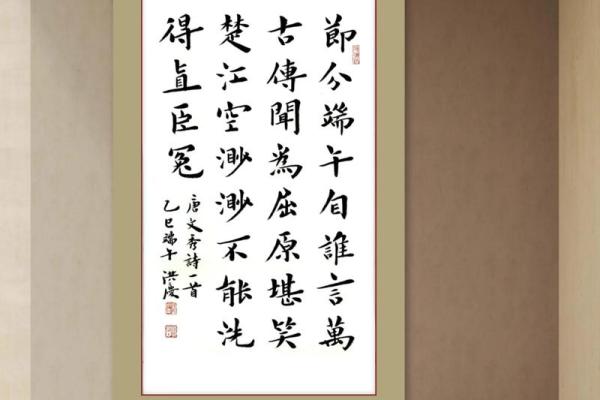 節分端午自誰言萬
古傳聞為屈原堪笑
楚江空渺渺不能洗
得直臣冤
唐文秀詩一首
乙巳端午 洪慶